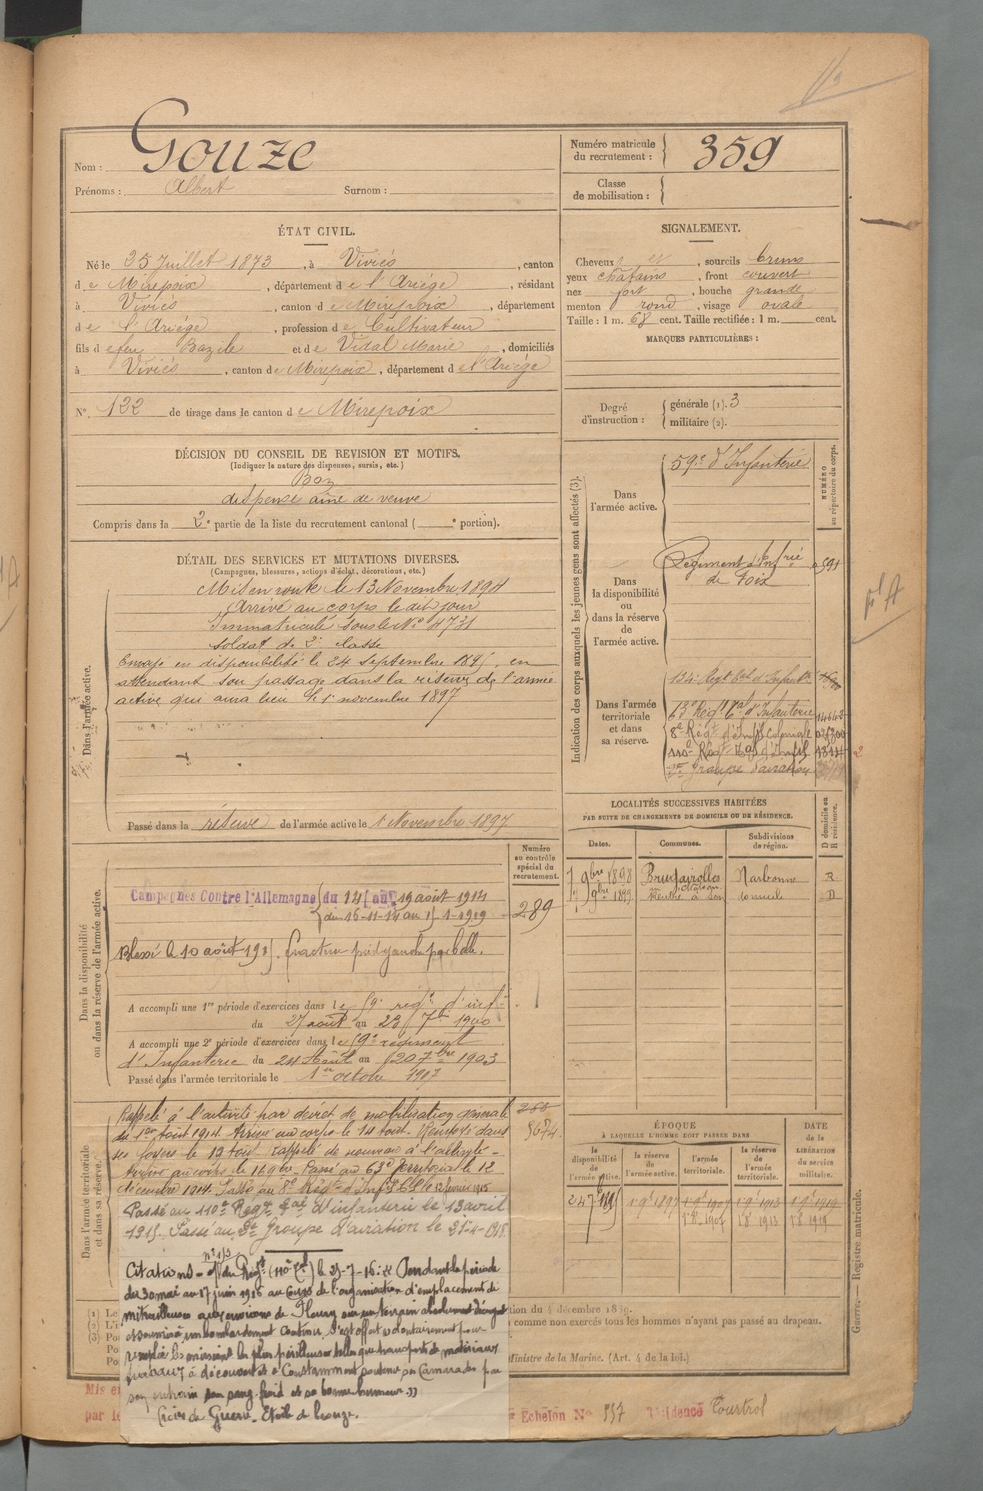 Nom : Gouze
Prénoms : Albert Surnom :
Numéro matricule du recrutement : 359
Classe de mobilisation :
ÉTAT CIVIL.
Né le 25 Juillet 1873, à Viviès, canton
de Mirepoix, département de l'Ariège, résidant
à Viviès, canton de Mirepoix, département
de l'Ariège, profession de Cultivateur
fils de feu Bazile et de Vidal Marie, domiciliés
à Viviès, canton de Mirepoix, département de l'Ariège
N° 122 de tirage dans le canton de Mirepoix
DÉCISION DU CONSEIL DE REVISION ET MOTIFS.
(Indiquer la nature des dispenses, sursis, etc.)
Bon
dispensé aîné de veuve
Compris dans la 2e partie de la liste du recrutement cantonal ( e portion).
DÉTAIL DES SERVICES ET MUTATIONS DIVERSES.
(Campagnes, blessures, actions d'éclat, décorations, etc.)
Dans l'armée active.
Mis en route le 13 Novembre 1894
Arrivé au corps le dit jour
Immatriculé sous le N° 4731
soldat de 2e classe
Envoyé en disponibilité le 24 septembre 1895, en
attendant son passage dans la réserve de l'armée
active qui aura lieu le 1 novembre 1897
Passé dans la réserve de l'armée active le 1 Novembre 1897
Numéro au contrôle spécial du recrutement.
289
Dans la disponibilité ou dans la réserve de l'armée active.
Campagnes Contre l'Allemagne du 14 au 19 août 1914
du 16-11-14 au 15-1-1919
Blessé le 10 août 1915. fracture pied gauche par balle.
A accompli une 1re période d'exercices dans le 59e régt d'inf
du 27 août au 23 7bre 1900
A accompli une 2e période d'exercices dans le 59e régiment
d'Infanterie du 24 Août au 20 7bre 1903
Passé dans l'armée territoriale le 1er octobre 1907
Dans l'armée territoriale et dans sa réserve.
Rappelé à l'activité par décret de mobilisation générale
du 1er Août 1914. Arrivé au corps le 14 Août. Renvoyé dans
ses foyers le 19 Août. Rappelé de nouveau à l'activité.
Arrivé au corps le 16 9bre. Passé au 63e Territorial le 12
décembre 1914. Passé au 8e Régt d'Inf Cle le 12 février 1915
Passé au 110e Régt Tal d'infanterie le 13 avril
1915. Passé au 2e Groupe d'aviation le 21-4-1918.
Citations - du Régt (110e Tal) le 25-7-16 : « Pendant la période
du 30 mai au 17 juin 1916 au cours de l'organisation d'emplacement de
mitrailleuses aux environs de Fleury sur un terrain absolument découvert
et soumis à un bombardement continu, s'est offert volontairement pour
remplir les missions les plus périlleuses telles que transports de matériaux
travaux à découvert et a constamment soutenu ses camarades par
son entrain son sang-froid et sa bonne humeur »
Croix de Guerre. Etoile de bronze.
SIGNALEMENT.
Cheveux et sourcils bruns
yeux châtains, front couvert
nez fort, bouche grande
menton rond, visage ovale
Taille : 1 m. 68 cent. Taille rectifiée : 1 m. cent.
MARQUES PARTICULIÈRES :
Degré d'instruction : générale (1). 3
militaire (2).
Indication des corps auxquels les jeunes gens sont affectés (3).
NUMÉRO au répertoire du corps.
Dans l'armée active.
59e d'Infanterie
Dans la disponibilité ou dans la réserve de l'armée active.
Régiment d'Infrie
de Foix
Dans l'armée territoriale et dans sa réserve.
134e Régt Tal d'Infantie
63e Régt Tal d'Infanterie
8e Régt d'Inf Coloniale
110e Régt Tal d'Inf
2e Groupe d'aviation
LOCALITÉS SUCCESSIVES HABITÉES
PAR SUITE DE CHANGEMENTS DE DOMICILE OU DE RÉSIDENCE.
Dates. Communes. Subdivisions de région. D domicile ou R résidence.
9bre 1898 Brugairolles Narbonne R
9bre 1899 D
ÉPOQUE
À LAQUELLE L'HOMME DOIT PASSER DANS
la disponibilité de l'armée active. la réserve de l'armée active. l'armée territoriale. la réserve de l'armée territoriale.
DATE de la LIBÉRATION du service militaire.
24 7bre 1895
Guerre. — Registre matricule.
tion du 4 décembre 1889.
comme non exercés tous les hommes n'ayant pas passé au drapeau.
Ministre de la Marine. (Art. 4 de la loi.)
Echelon N° 557 Résidence